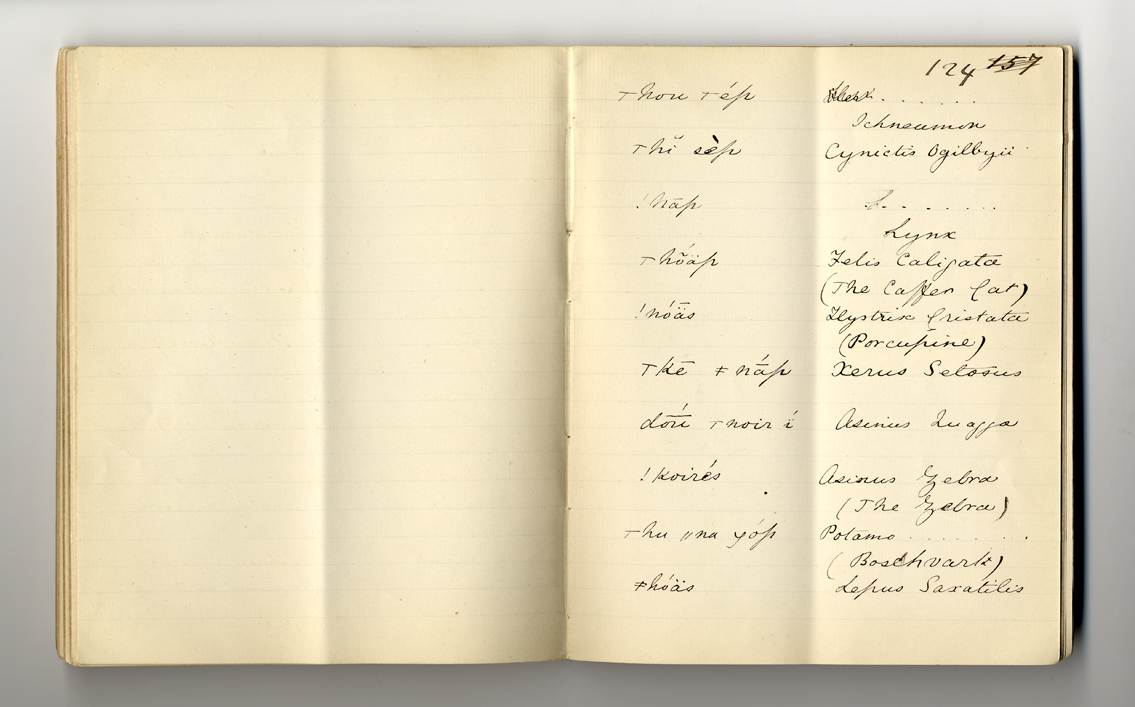 124 157
⊤hou ⊤ép . . . . . .
Ichneumon
⊤hĭ sèp Cynictis Ogilbyii
!nāp L. . . . . . .
Lynx
⊤hŏäp Felis Caligata
(The Caffer Cat)
!nóäs Hystrix Cristata
(Porcupine)
⊤kē ǂnā́p Xerus Setosus
dṓu ⊤noir í Asinus Quagga
!koirés Asinus Zebra
(The Zebra)
⊤hu ǁna góp Potamo . . . . . . . .
(Boschvark)
ǂhóäs Lepus Saxatilis